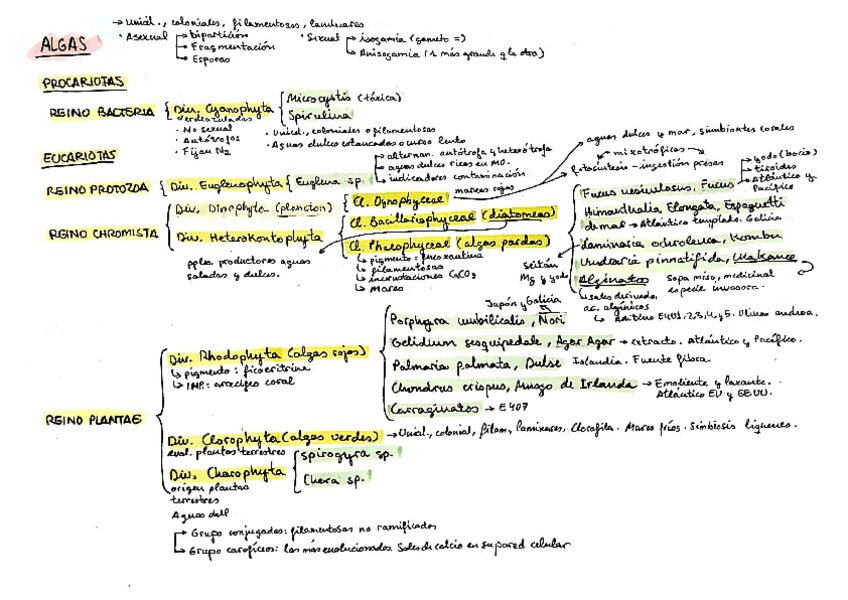 ALGAS
→ Unicel., coloniales, filamentosos, laminares
· Asexual → bipartición
→ Fragmentación
→ Esporas
· Sexual → isogamia (gameto =)
→ Anisogamia (1 más grande q la otro)
PROCARIOTAS
REINO BACTERIA { Div. Cyanophyta { Microcystis (tóxica)
Spirulina
verdeazuladas
· No sexual
· Autótrofos
· Fijan N2
· Unicel., coloniales o filamentosos
· Aguas dulces estancadas o curso lento
EUCARIOTAS
REINO PROTOZOA { Div. Euglenophyta { Euglena sp.
→ alternan. autótrofa y heterótrofa
→ aguas dulces ricas en MO.
→ indicadores contaminación
REINO CHROMISTA
Div. Dinophyta (plancton) { Cl. Dynophyceae
mareas rojas
aguas dulces y mar, simbiontes corales
mixotróficas
Fotosíntesis - ingestión presas
Div. Heterokontophyta
Cl. Bacillariophyceae (diatomeas)
pples productores aguas
saladas y dulces.
Cl. Phaeophyceae (algas pardas)
↳ pigmento: fucoxantina
↳ filamentosas
↳ incrustaciones CaCO3
↳ Mares
Fucus vesiculosus, Fucus
→ yodo (bocio)
→ tiroides
→ Atlántico y
Pacífico
Himanthalia Elongata, Espaguetti
de mar → Atlántico templado. Galicia
Laminaria ochroleuca, Kombu
Seitán
Mg y yodo
Undaria pinnatifida, Wakame
Sopa miso, medicinal
especie invasora.
Alginatos
↳ sales derivado,
ac. algínicos
↳ Aditivo E401, 2, 3, 4, y 5.
REINO PLANTAE
Div. Rhodophyta (algas rojas)
↳ pigmento: ficoeritrina
↳ IMP: arrecifes coral
Japón y Galicia
Porphyra umbilicalis, Nori
Gelidium sesquipedale, Agar Agar → extracto. Atlántico y Pacífico.
Palmaria palmata, Dulse Islandia. Fuente fibra.
Chondrus crispus, Musgo de Irlanda → Emoliente y laxante.
Atlántico EU y EEUU.
Carraginatos → E407
Div. Clorophyta (algas verdes) → Unicel., colonial, filam, laminares, Clorofila. Mares fríos. Simbiosis líquenes.
evol. plantas terrestres
Div. Charophyta { Spirogyra sp.
Chara sp.
origen plantas
terrestres
Aguas dul
→ Grupo conjugados: filamentosas no ramificados
→ Grupo carofíceos: las más evolucionados. Sales de calcio en su pared celular